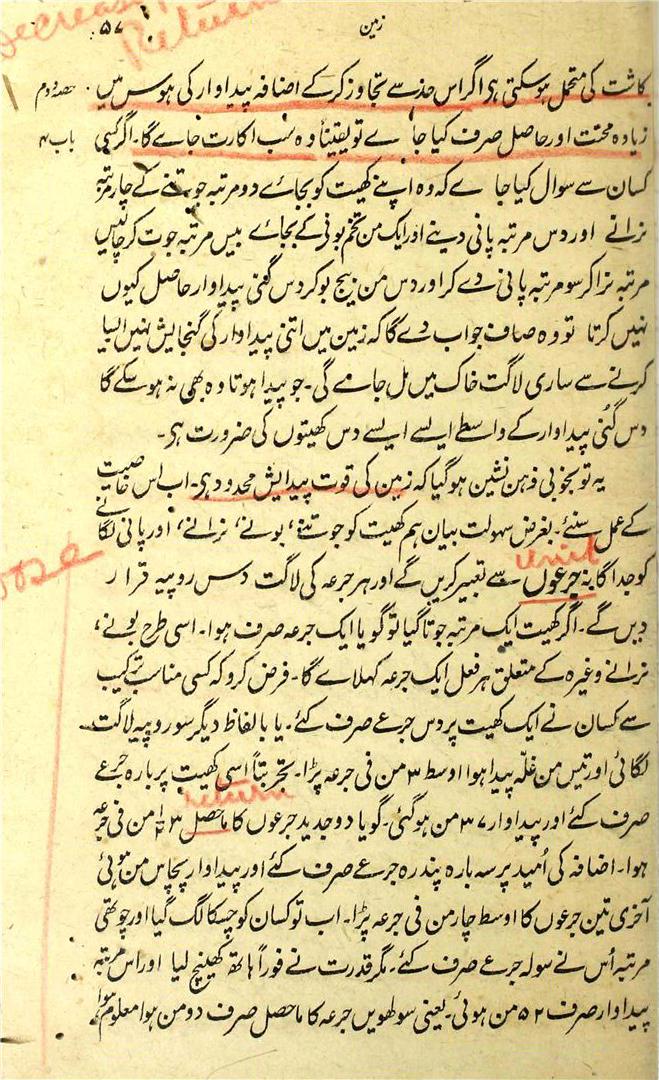 Decreasing Return
زمین
۵۷
حصہ دوم
باب ۴
کاشت کی متحمل ہوسکتی ہی اگر اس حد سے تجاوز کرکے اضافہ پیداوار کی ہوس میں
زیادہ محنت اور حاصل صرف کیا جا ے تو یقیناً وہ سب اکارت جاے گا۔ اگر کسی
کسان سے سوال کیا جا ے کہ وہ اپنے کھیت کو بجاے دو مرتبہ جوتنے کے چار مرتبہ
نرانے اور دس مرتبہ پانی دینے اور ایک من تخم بونی کے بجاے بیس مرتبہ جوت کر چالیس
مرتبہ نرا کر سو مرتبہ پانی دے کر اور دس من بیج بوکر دس گنی پیداوار حاصل کیوں
نہیں کرتا تو وہ صاف جواب دے گا کہ زمین میں اتنی پیداوار کی گنجایش نہیں ایسا
کرنے سے ساری لاگت خاک میں مل جامے گی۔ جو پیدا ہوتا وہ بھی نہ ہوسکے گا
دس گنی پیداوار کے واسطے ایسے ایسے دس کھیتوں کی ضرورت ہی۔
یہ تو بخوبی ذہن نشین ہوگیا کہ زمین کی قوت پیدایش محدود ہی۔ اب اس خاصیت
کے عمل سنئے۔ بغرض سہولت بیان ہم کھیت کو جوتنے، بونے، نرانے، اور پانی لگانے
unit
کو جداگانہ جرعوں سے تعبیر کریں گے اور ہر جرعہ کی لاگت دس روپیہ قرار
dose
دیں گے۔ اگر کھیت ایک مرتبہ جوتا گیا تو گویا ایک جرعہ صرف ہوا۔ اسی طرح بونے،
نرانے وغیرہ کے متعلق ہر فعل ایک جرعہ کہلاے گا۔ فرض کرو کہ کسی مناسب ترکیب
سے کسان نے ایک کھیت پر دس جرعے صرف کئے۔ یا بالفاظ دیگر سو روپیہ لاگت
لگائی اور تیس من غلّہ پیدا ہوا اوسط ۳ من فی جرعہ پڑا۔ تجربتاً اسی کھیت پر بارہ جرعے
return
صرف کئے اور پیداوار ۳۷ من ہوگئی۔ گویا دو جدید جرعوں کا ماحصل ۳½ من فی جرعہ
ہوا۔ اضافہ کی اُمید پر سہ بارہ پندرہ جرعے صرف کئے اور پیداوار پچاس من ہوئی
آخری تین جرعوں کا اوسط چار من فی جرعہ پڑا۔ اب تو کسان کو چسکا لگ گیا اور چوتھی
مرتبہ اُس نے سولہ جرعے صرف کئے۔ مگر قدرت نے فوراً ہاتھ کھینچ لیا اور اس مرتبہ
پیداوار صرف ۵۲ من ہوئی۔ یعنی سولھویں جرعہ کا ماحصل صرف دو من ہوا معلوم ہوا